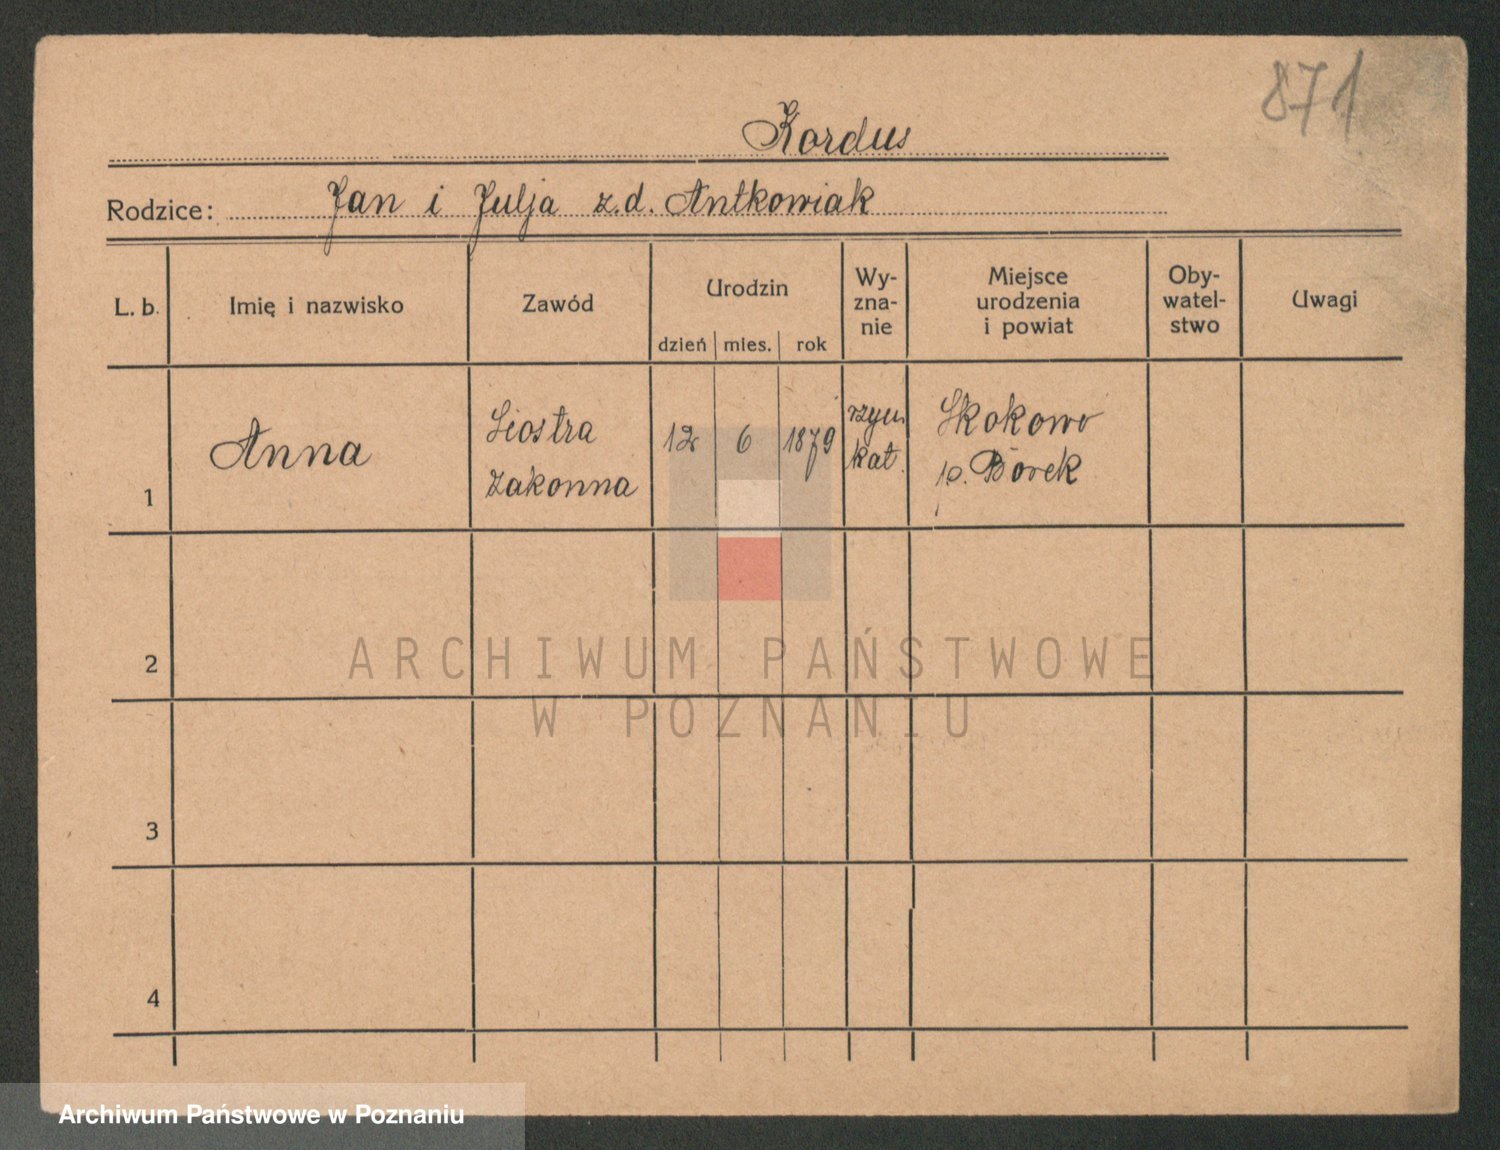 871
Kordus
Rodzice: Jan i Julja z.d. Antkowiak
L. b.
Imię i nazwisko
Zawód
Urodzin
dzień mies. rok
Wy-
zna-
nie
Miejsce
urodzenia
i powiat
Oby-
watel-
stwo
Uwagi
1
Anna
Siostra
Zakonna
12 6 1879
rzym
kat.
Skokowo
p. Borek
2
3
4
ARCHIWUM PAŃSTWOWE
W POZNANIU
Archiwum Państwowe w Poznaniu